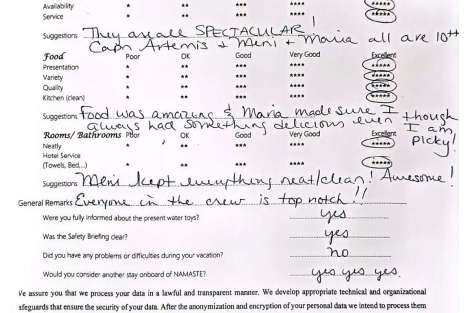 Availability * ** *** **** *****
Service * ** *** **** *****
Suggestions They are all SPECTACULAR!
Capn Artemis & Meni + Maria all are 10++
Food Poor OK Good Very Good Excellent
Presentation * ** *** **** *****
Variety * ** *** **** *****
Quality * ** *** **** *****
Kitchen (clean) * ** *** **** *****
Suggestions Food was amazing & Maria made sure I
always had something delicious even though
I am
picky!
Rooms/ Bathrooms Poor OK Good Very Good Excellent
Neatly * ** *** **** *****
Hotel Service
(Towels, Bed,...) * ** *** **** *****
Suggestions Meni kept everything neat/clean! Awesome!
General Remarks Everyone in the crew is top notch!!
Were you fully informed about the present water toys? yes
Was the Safety Briefing clear? yes
Did you have any problems or difficulties during your vacation? no
Would you consider another stay onboard of NAMASTE? yes yes yes.
We assure you that we process your data in a lawful and transparent manner. We develop appropriate technical and organizational
safeguards that ensure the security of your data. After the anonymization and encryption of your personal data we intend to process them